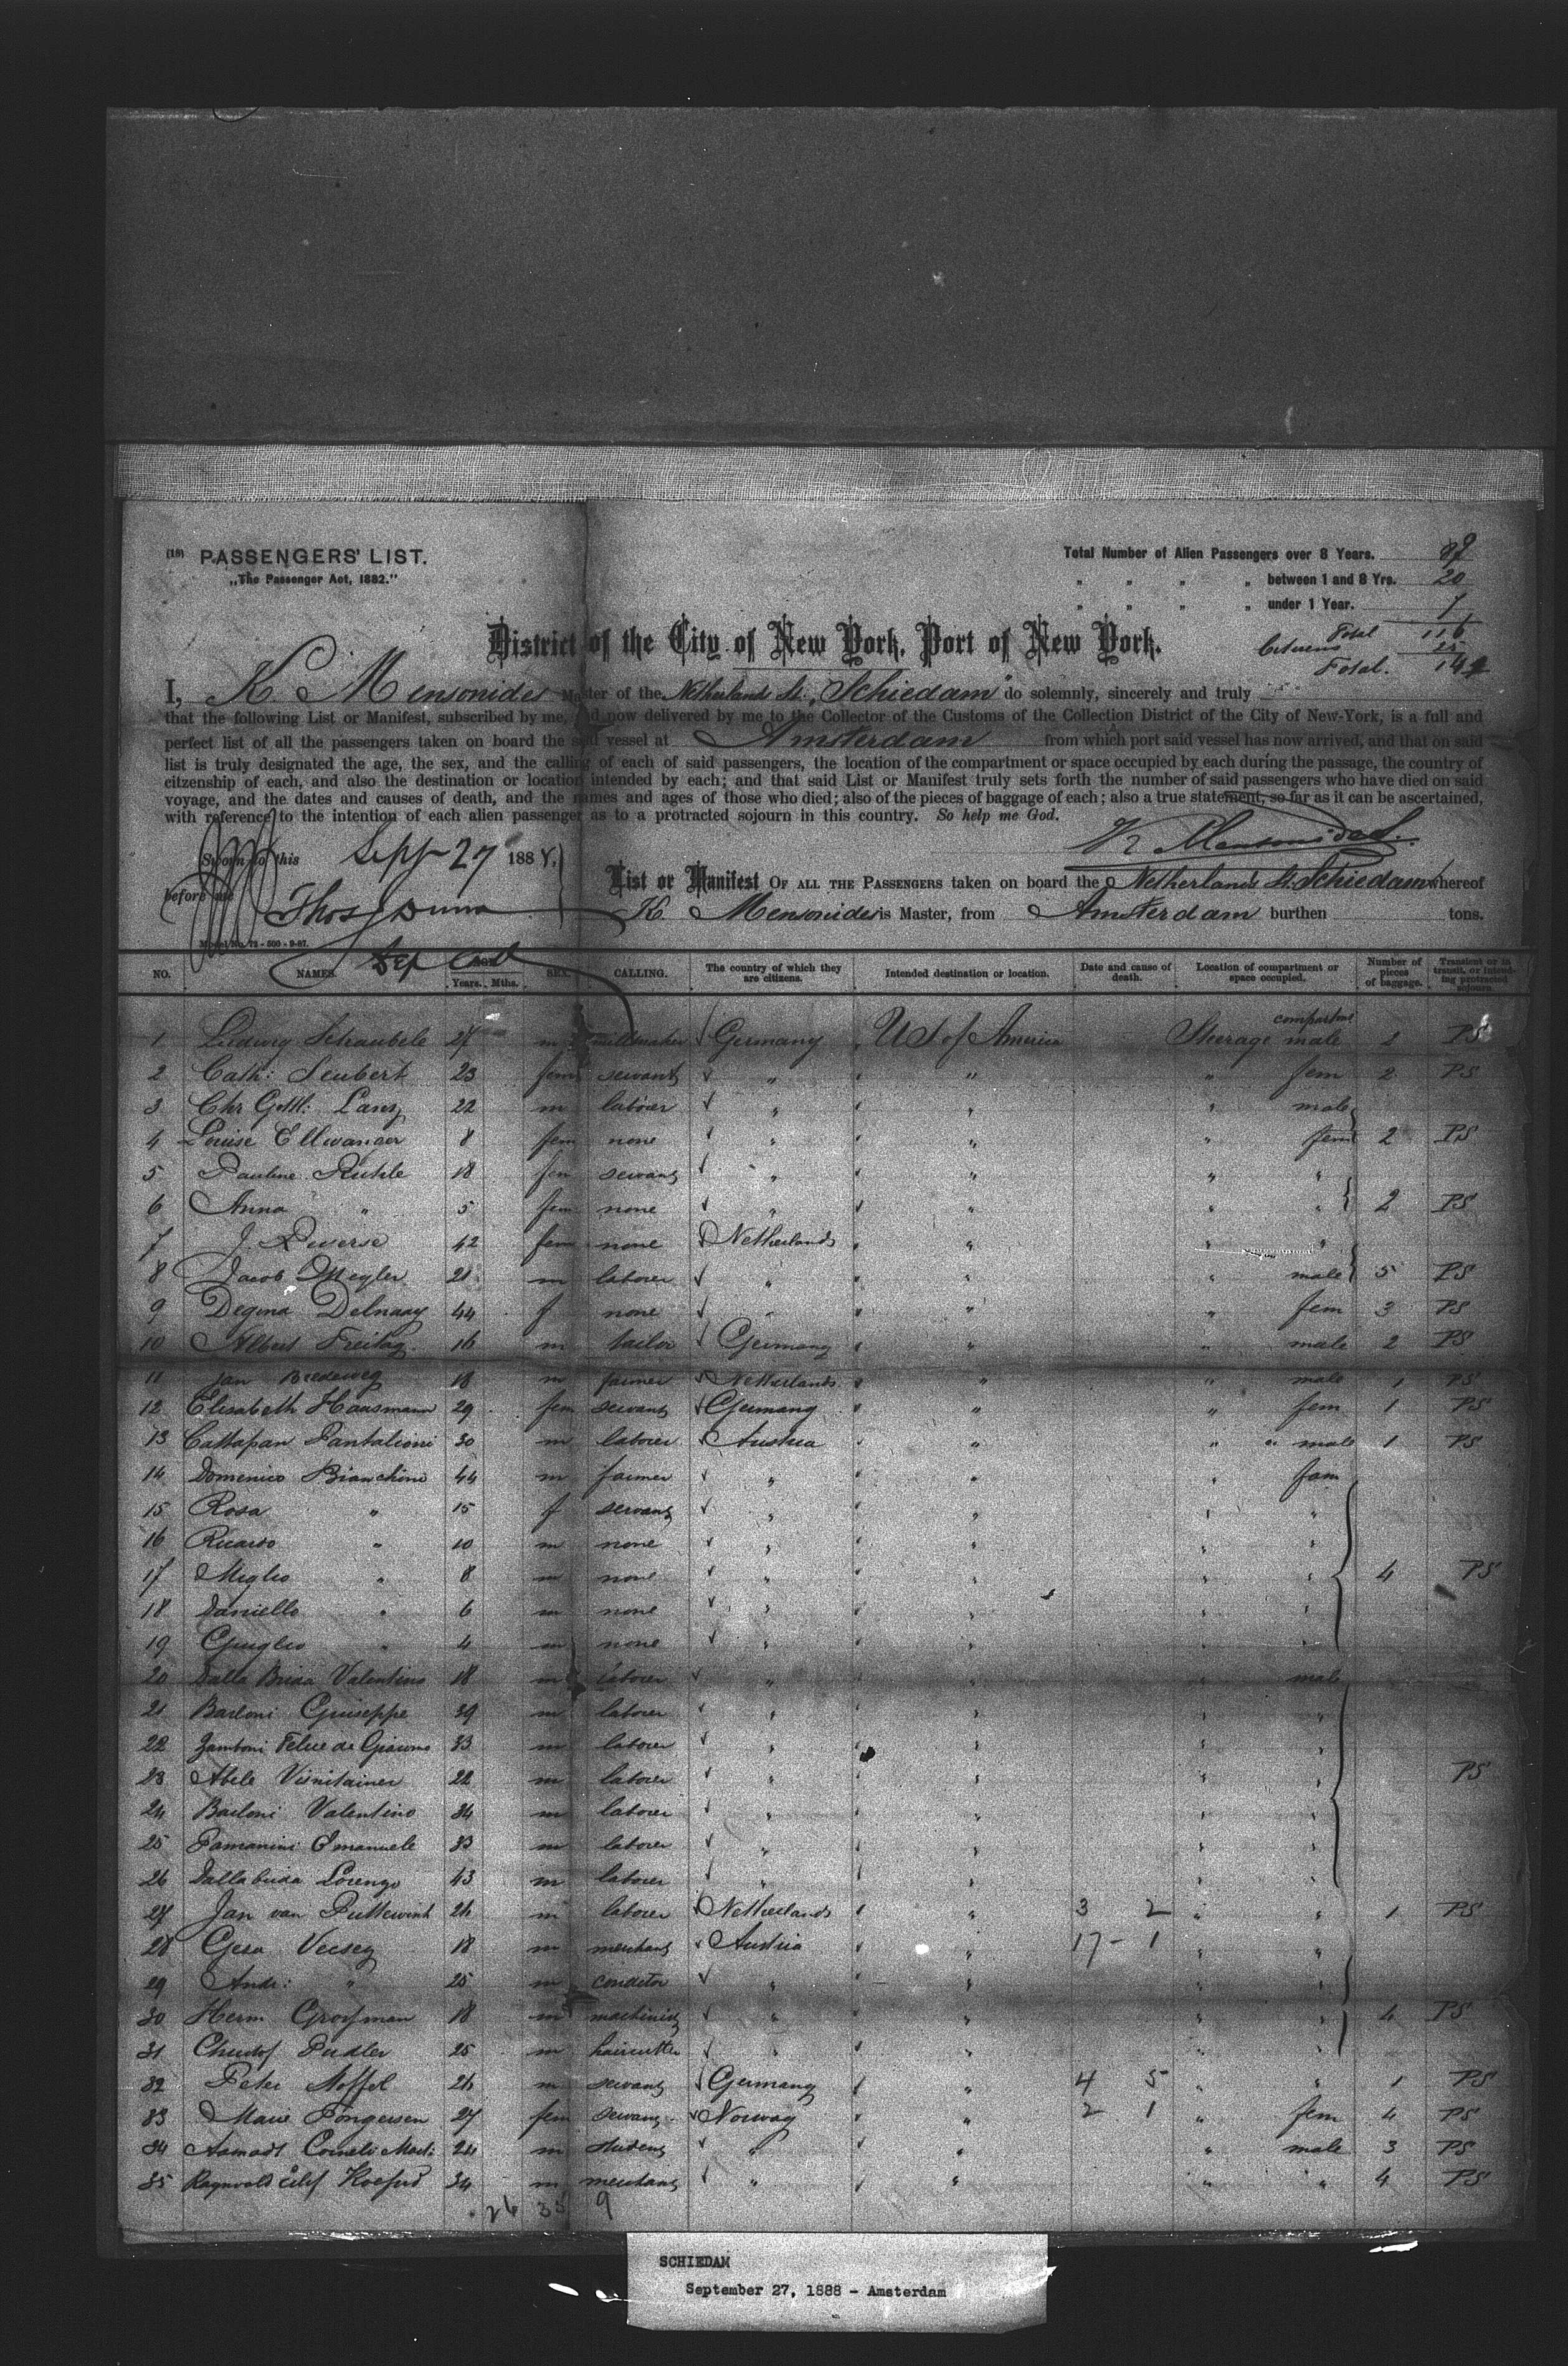 (18) PASSENGERS' LIST.
„The Passenger Act, 1882."
Total Number of Alien Passengers over 8 Years. 89
„ „ „ „ between 1 and 8 Yrs. 20
„ „ „ „ under 1 Year. 7
Total 116
Citizens
Total.
District of the City of New York, Port of New York.
I, K. Mensonides Master of the Netherlands St. „Schiedam" do solemnly, sincerely and truly
that the following List or Manifest, subscribed by me, and now delivered by me to the Collector of the Customs of the Collection District of the City of New-York, is a full and
perfect list of all the passengers taken on board the said vessel at Amsterdam from which port said vessel has now arrived, and that on said
list is truly designated the age, the sex, and the calling of each of said passengers, the location of the compartment or space occupied by each during the passage, the country of
citzenship of each, and also the destination or location intended by each; and that said List or Manifest truly sets forth the number of said passengers who have died on said
voyage, and the dates and causes of death, and the names and ages of those who died; also of the pieces of baggage of each; also a true statement, so far as it can be ascertained,
with reference to the intention of each alien passenger as to a protracted sojourn in this country. So help me God.
K Mensonides.
Sworn to this Sept 27 1888.
before me Thos Dunn
List or Manifest OF ALL THE PASSENGERS taken on board the Netherlands St. Schiedam whereof
K. Mensonides is Master, from Amsterdam burthen tons.
Model No. 72 - 500 - 9-87.
NO. NAMES. AGE. Years. Mths. SEX. CALLING. The country of which they are citizens. Intended destination or location. Date and cause of death. Location of compartment or space occupied. Number of pieces of baggage. Transient or in transit, or intending protracted sojourn.
1 Ludwig Schaubele 27 m Germany U S of America Steerage compartmt male 2 PS
2 Cath: Seubert 23 fem servant „ „ „ fem 2 PS
3 Chr Gottl: Lanz 22 m laborer „ „ „ male
4 Louise Ellwanger 8 fem none „ „ „ fem 2 PS
5 Pauline Ruhle 18 fem servant „ „ „ „
6 Anna „ 5 fem none „ „ „ „ 2 PS
7 J. 42 fem none Netherlands „ „ „
8 Jacob Megler 21 m laborer „ „ „ male 5 PS
9 Degina Delnaay 44 f none „ „ „ fem 3 PS
10 Albert Freitag 16 m tailor Germany „ „ male 2 PS
11 Jan Bredeweg 18 m farmer Netherlands „ „ male 1 PS
12 Elisabeth Hausmann 29 fem servant Germany „ „ fem 1 PS
13 Cattapan Pantalioni 30 m laborer Austria „ „ „ male 1 PS
14 Domenico Bianchini 44 m farmer „ „ „ fam
15 Rosa „ 15 f servant „ „ „ „
16 Ricardo „ 10 m none „ „ „ „
17 Miglio „ 8 m none „ „ „ „ 4 PS
18 Daniello „ 6 m none „ „ „ „
19 Giuglio „ 4 m none „ „ „ „
20 Dalla Brida Valentino 18 m laborer „ „ „ male
21 Bailoni Giuseppe 39 m laborer „ „ „ „
22 Zamboni Felice de Giacomo 33 m laborer „ „ „ „
23 Abele 22 m laborer „ „ „ „ PS
24 Bailoni Valentino 34 m laborer „ „ „ „
25 Pamanini Emanuele 33 m laborer „ „ „ „
26 Dallabrida Lorenzo 43 m laborer „ „ „ „
27 Jan van 26 m laborer Netherlands „ 3 2 „ „ 1 PS
28 Gesa Vecsey 18 m merchant Austria „ 17 - 1 „ „
29 Andr: „ 25 m conditor „ „ „ „
30 Herm Grossman 18 m machinist „ „ „ „ 4 PS
31 Padler 25 m haircutter „ „ „ „
32 Peter Noffel 26 m servant Germany „ 4 5 „ „ 1 PS
33 Marie Tongersen 27 fem servant Norway „ 2 1 „ fem 4 PS
34 Aamodt Corneli 24 m student „ „ „ male 3 PS
35 Ragnvald 34 m merchant „ „ „ „ 4 PS
26 35 9
SCHIEDAM
September 27, 1888 - Amsterdam